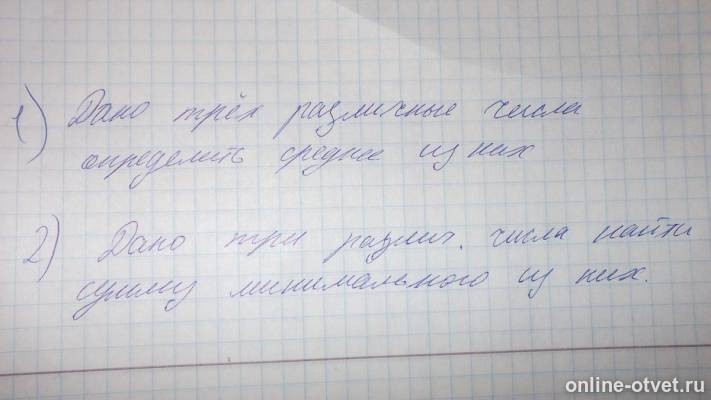 1) Дано трёх различные числа
определить среднее из них
2) Дано три различ. числа найти
сумму минимального из них.
online-otvet.ru